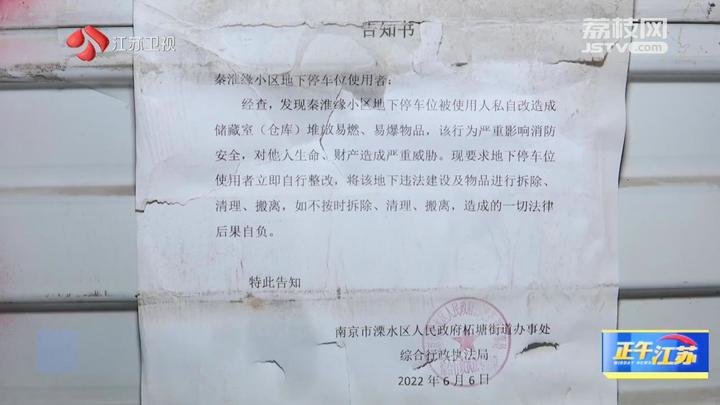 江苏卫视
荔枝网
JSTV.COM
告知书
秦淮缘小区地下停车位使用者：
经查，发现秦淮缘小区地下停车位被使用人私自改造成
储藏室（仓库）堆放易燃、易爆物品，该行为严重影响消防
安全，对他人生命、财产造成严重威胁。现要求地下停车位
使用者立即自行整改，将该地下违法建设及物品进行拆除、
清理、搬离，如不按时拆除、清理、搬离，造成的一切法律
后果自负。
特此告知
南京市溧水区人民政府柘塘街道办事处
综合行政执法局
2022年6月6日
正午江苏
MIDDAY NEWS